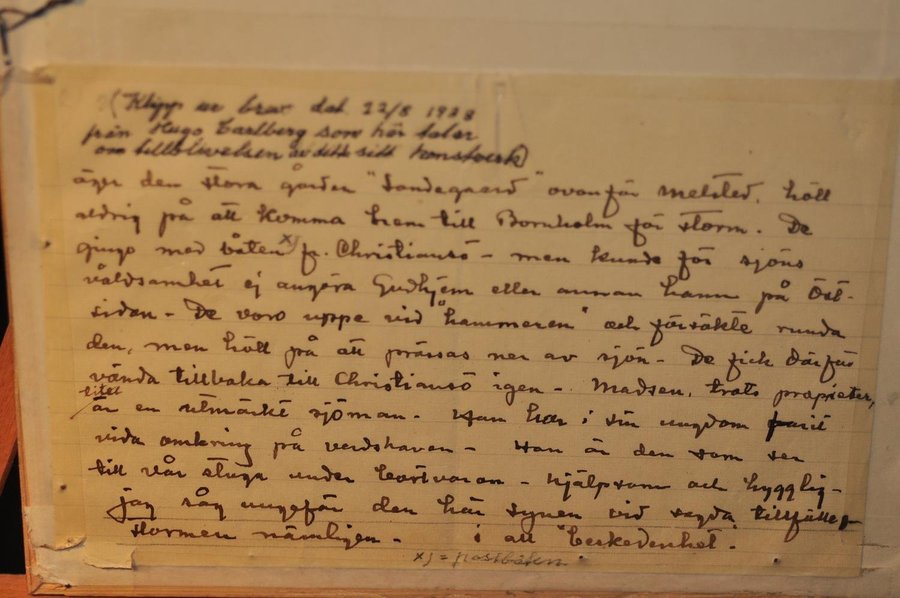 (Klipp ur brev dat 22/8 1928
från Hugo Carlberg som här talar
om tillblivelsen av detta sitt konstverk)
äger den stora gården "Sandegaard" ovanför Melsted, höll
aldrig på att komma hem till Bornholm för storm. De
gingo med båten x) fr. Christiansö – men kunde för sjöns
våldsamhet ej angöra Gudhjem eller annan hamn på Öst-
sidan – De voro uppe vid "hammeren" och försökte runda
den, men höll på att pressas ner av sjön – De fick därför
vända tillbaka till Christiansö igen – Madsen, trots proprietär,
titel
är en utmärkt sjöman – Han har i sin ungdom farit
vida omkring på verdshaven – Han är den som ser
till vår stuga under bortvaron – hjälpsam och hygglig –
Jag såg ungefär den här synen vid sagda tillfälle,
stormen nämligen – i all "beskedenhet".
x) = postbåten